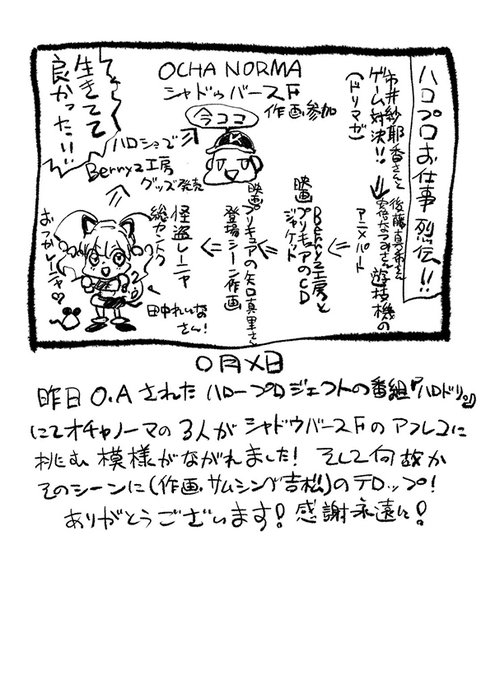 ハロプロお仕事烈伝!!
市井紗耶香さんと
ゲーム対決!!
(ドリマガ)
後藤真希さん
安倍なつみさん遊技機の
アニメパート
Berryz工房と
映画プリキュアのCD
ジャケット
映画プリキュアの矢口真里さん
登場シーン作画
怪盗レーニャ
総セントク
田中れいなさん!
おつかレーニャ♡
ハロショで
Berryz工房
グッズ発売
OCHA NORMA
シャドウバースF
作画参加
今ココ
生きてて
良かった!!
〇月×日
昨日O.Aされたハロープロジェクトの番組「ハロドリ。」
にてオチャノーマの3人がシャドウバースFのアフレコに
挑む模様がながれました! そして何故か
そのシーンに(作画.サムシング吉松)のテロップ!
ありがとうございます! 感謝永遠に!